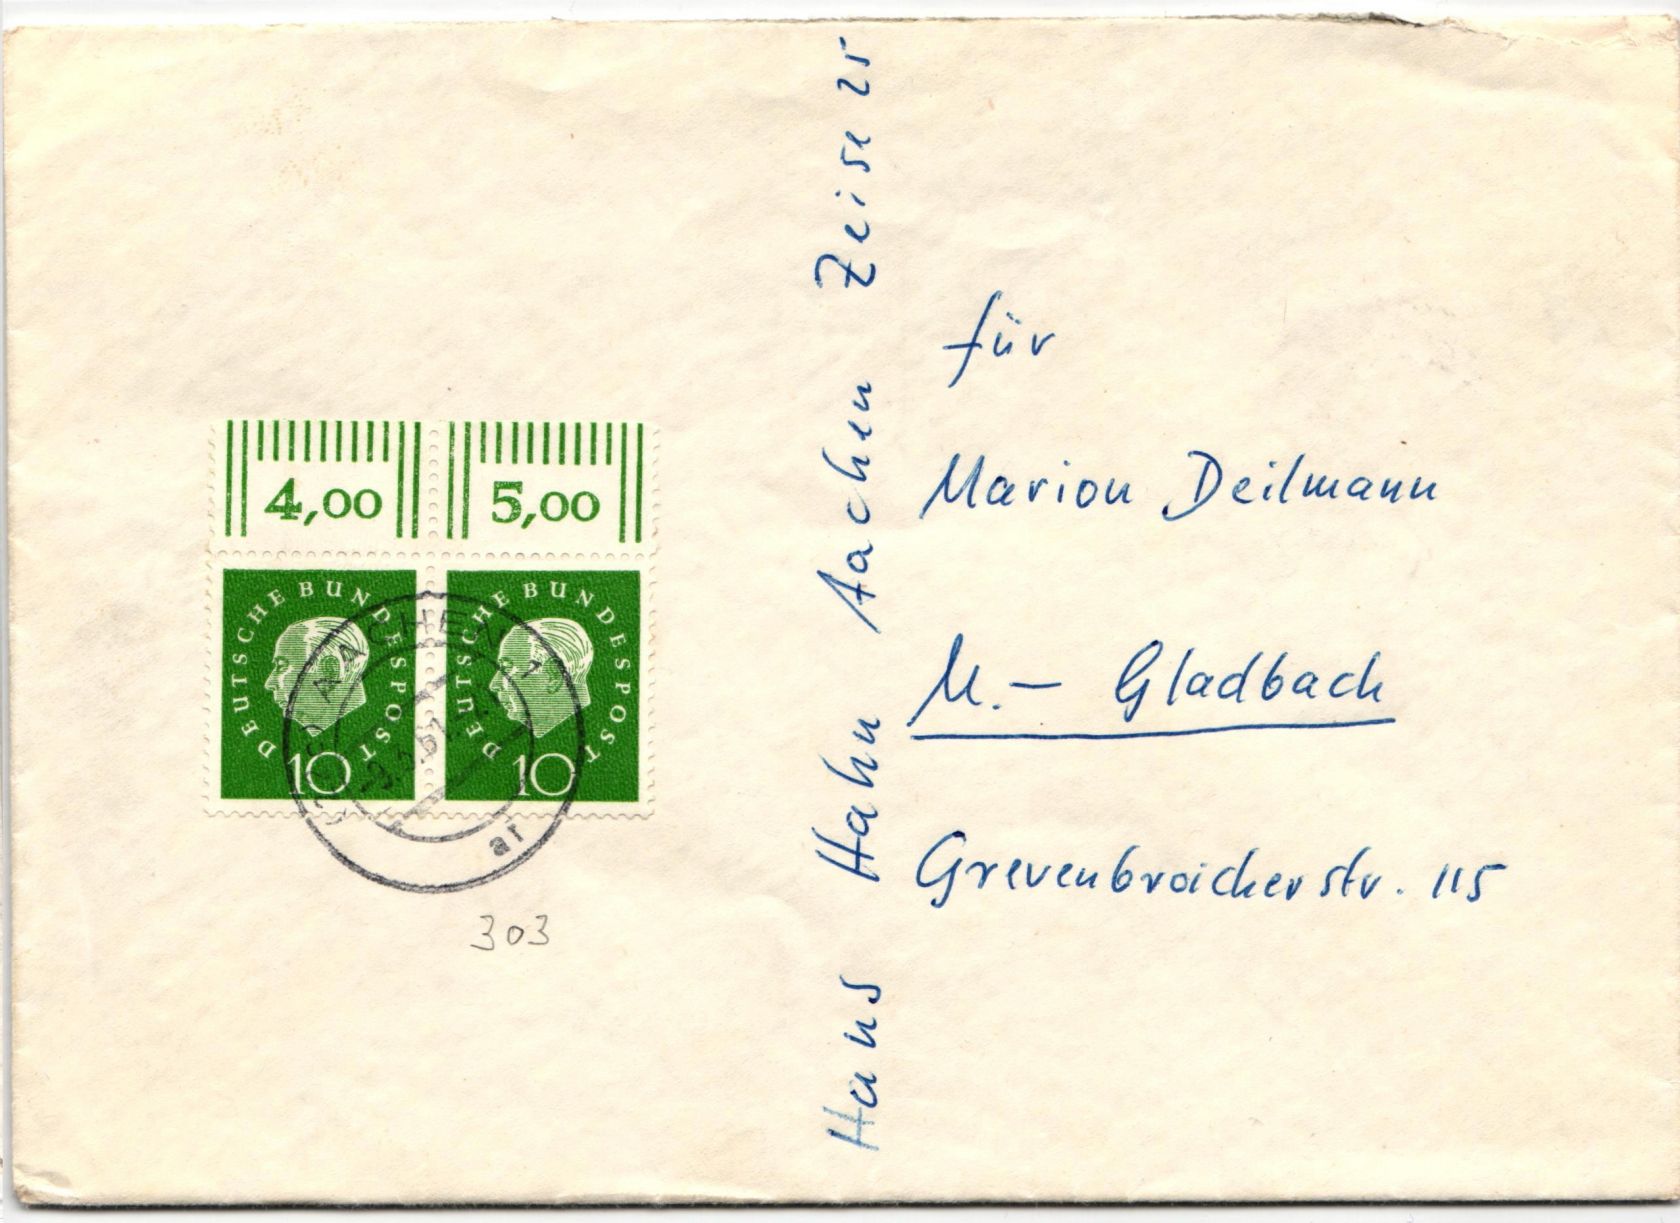 Hans Hahn Aachen Zeise 25
für
Marion Deilmann
M. – Gladbach
Grevenbroicherstr. 115
4,00 5,00
DEUTSCHE BUNDESPOST DEUTSCHE BUNDESPOST
10 10
AACHEN 1
ar
303